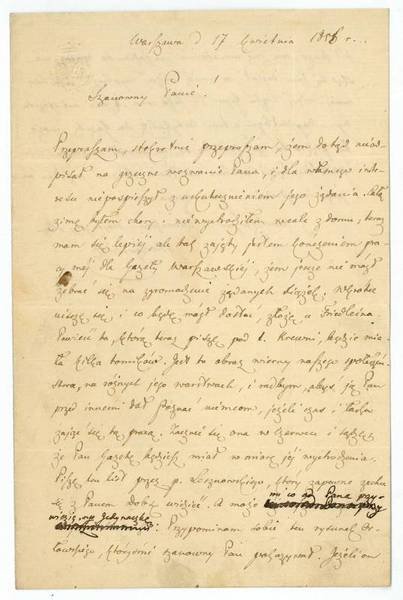 Warszawa d 17 kwietnia 1856 r...
Szanowny Panie!
Przepraszam, stokrotnie przepraszam, żem dotąd nieod-
pisał na grzeczne wezwanie Pana, i dla własnego inte-
resu niepospieszył z uskutecznieniem jego żądania. Całą
zimę byłem chory i niewychodziłem wcale z domu, teraz
mam się lepiej, ale tak zajęty jestem kończeniem pra-
cy mej dla Gazety Warszawskiej, żem jeszcze nie mógł
zebrać się na zgromadzenie żądanych książek. Wkrótce
i co będę mógł dostać, złożę u Friedleina
Powieść ta, którą teraz piszę pod t. Krewni, będzie mia-
ła kilka tomików. Jest to obraz wierny naszego społeczeń-
stwa, na różnych jego warstwach, i radbym, abyś ją Pan
przed innemi dał poznać niemcom, jeżeli czas i
zająć się tą pracą. Zacznie się ona w czerwcu i sądzę
że Pan Gazetę będziesz miał w miarę jej wychodzenia.
Piszę ten list przez p. Lesznowskiego, który zapewne zech-
ce z Panem widzieć. A może mi co od Pana przy-
wiezie
Przypominam sobie ten rysunek Or-
łowskiego, któryś mi szanowny Pan pokazywał. Jeżeli on